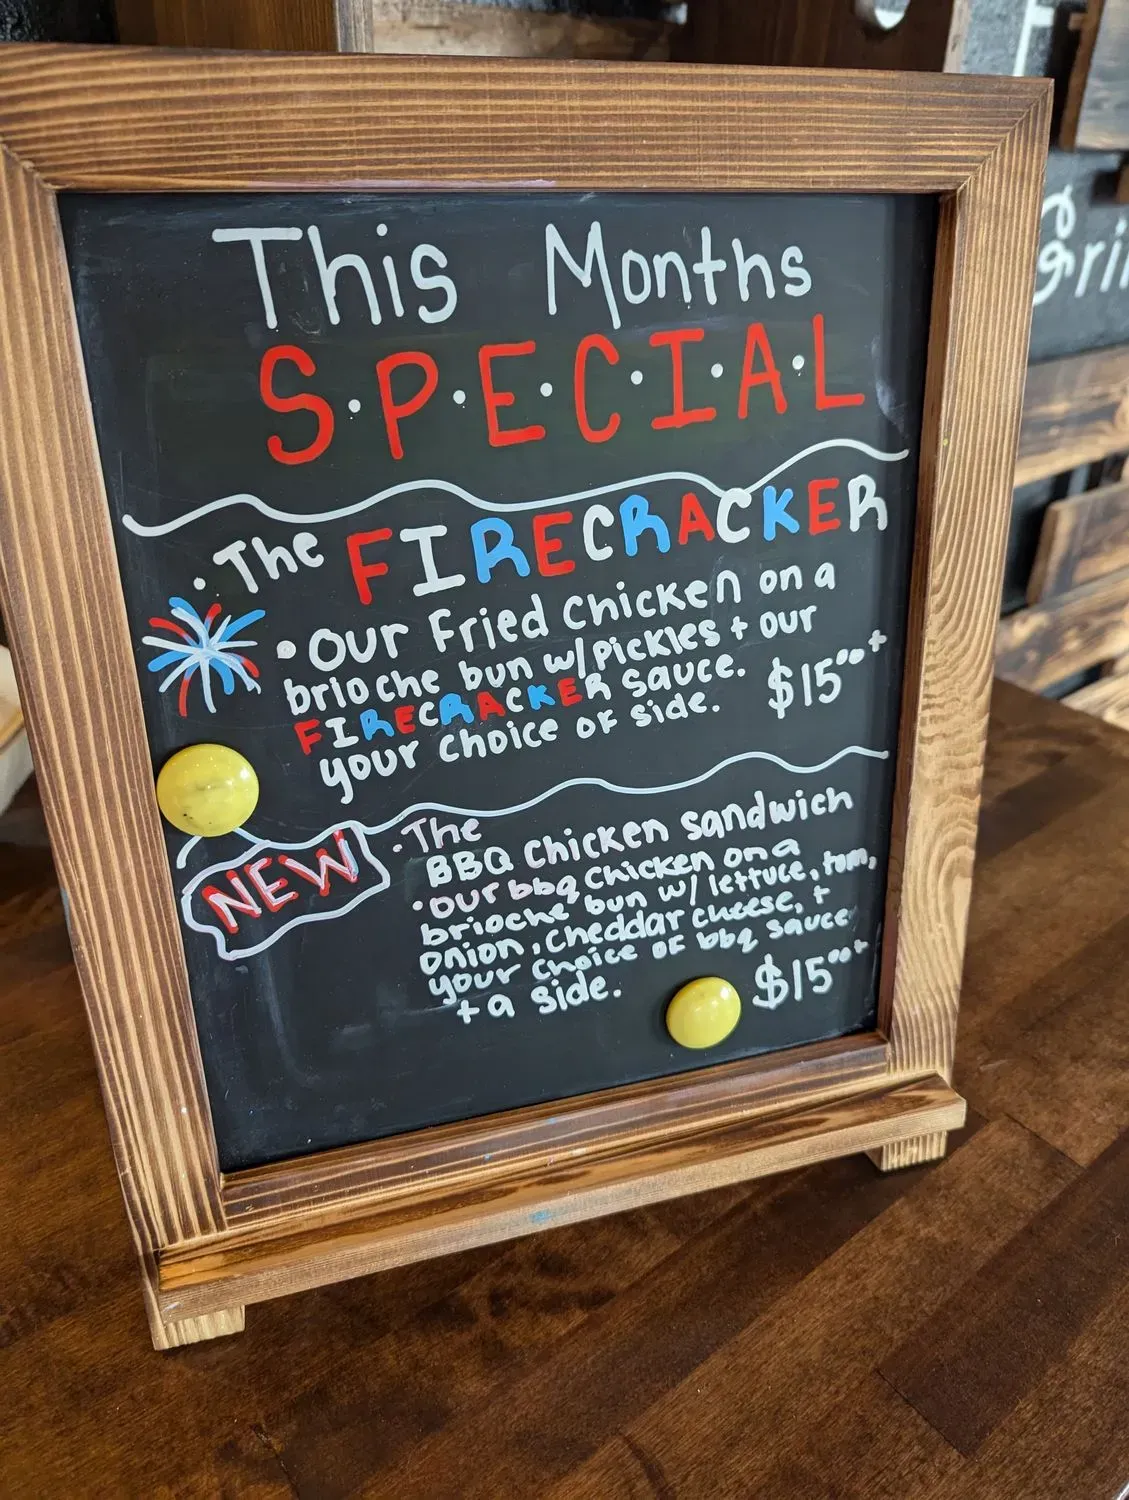 This Months
S·P·E·C·I·A·L
·The FIRECRACKER
·OUR Fried Chicken on a
brioche bun w/pickles + our
FIRECRACKER sauce.
your choice of side.
$15⁰⁰+
NEW
·The
BBQ Chicken sandwich
·our bbq chicken on a
brioche bun w/ lettuce, tom,
onion, cheddar cheese, +
your choice of bbq sauce
+ a side.
$15⁰⁰+